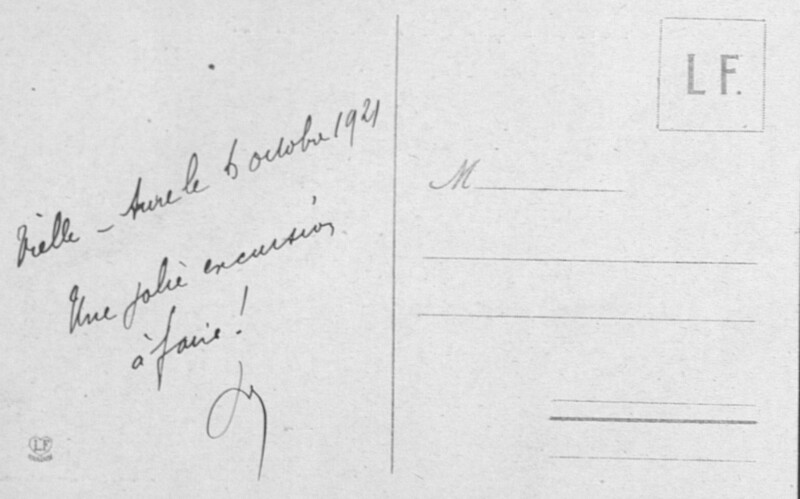 Vielle - Aure le 6 octobre 1921
Une jolie excursion
à faire !
L F.
M
L.F.